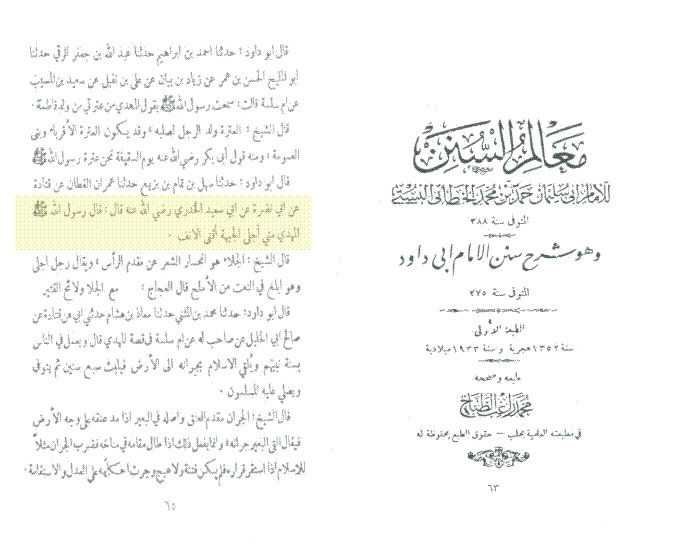 معالم السنن
للإمام ابي سليمان حمد بن محمد الخطابي البستي
المتوفى سنة ٣٨٨
وهو شرح سنن الامام ابي داود
المتوفى سنة ٢٧٥
الطبعة الأولى
سنة ١٣٥٢ هجرية و سنة ١٩٣٣ ميلادية
طبعه وصححه
محمد راغب الطباخ
في مطبعته العلمية بحلب – حقوق الطبع محفوظة له
٦٣
قال ابو داود: حدثنا احمد بن ابراهيم حدثنا عبد الله بن جعفر الرقي حدثنا
ابو المليح الحسن بن عمر عن زياد بن بيان عن علي بن نفيل عن سعيد بن المسيب
عن ام سلمة قالت: سمعت رسول الله ﷺ يقول المهدي من عترتي من ولد فاطمة.
قال الشيخ: العترة ولد الرجل لصلبه، وقد يكون العترة الأقرباء وبنى
العمومة، ومنه قول أبى بكر رضي الله عنه يوم السقيفة نحن عترة رسول الله ﷺ
قال ابو داود: حدثنا سهل بن تمام بن بزيع حدثنا عمران القطان عن قتادة
عن ابي نضرة عن ابي سعيد الخدري رضي الله عنه قال: قال رسول الله ﷺ
المهدي مني أجلى الجبهة أقنى الانف.
قال الشيخ: الجلاء هو انحسار الشعر عن مقدم الرأس، ويقال رجل اجلى
وهو ابلغ في النعت من الأصلع قال العجاج: مع الجلا ولائح القتير
قال ابو داود: حدثنا محمد بن المثني حدثنا معاذ بن هشام حدثني ابي عن قتادة عن
صالح ابي الخليل عن صاحب له عن ام سلمة في قصة المهدي قال ويعمل في الناس
بسنة نبيهم ويلقي الاسلام بجرانه الى الأرض فيلبث سبع سنين ثم يتوفى
ويصلي عليه المسلمون.
قال الشيخ: الجران مقدم العنق واصله في البعير اذا مد عنقه على وجه الأرض
فيقال القى البعير جرانه، وانما يفعل ذلك اذا طال مقامه في مناخه فضرب الجران مثلاً
للاسلام اذا استقر قراره فلم يكن فتنة ولا هيج وجرت احكامه على العدل والاستقامة.
٦٥